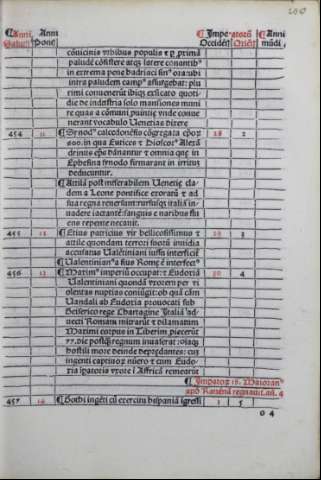 Anni Anni Imperatorū Anni
Salutis Ponc Occidēt Oriēt mūdi
cōuicinis vrbibus populis & p prima
palude cōsistere atq latere conantib
in extrema pene hadriaci sin ora: ubi
intra paludem campꝰ assurgebat: plu
rimi conuenerūt ibiq exsiccato quoti
die de industria solo mansiones muni
re quas a cōmuni puincię vnde conue
nerant vocabulo Venetias dixere
454 11 Synodꝰ calcedonēsis cōgregata epoꝝ
600. in qua Eutices & Dioscorꝰ Alexā
drinus epūs dānantur & omnia que in
Ephesina synodo firmarant in irritū
deducuntur.
28 2
Attila post miserabilem Venetię cla
dem a Leone pontifice exoratꝰ & ad
sua regna reuersus: rursusq italiā in
uadere iactante: sanguis e naribus flu
ens repente necauit.
455 12 Etius patricius vir bellicosissimus &
attile quondam terrori fuerat inuidia
accusatus Valētiniani iussu interficit
Valentinianꝰ a suis Romę ē interfectꝰ
29 3
456 13 Maximꝰ imperiū occupat: & Eudoxiā
Valentiniani quondā vxorem per vi
olentas nuptias coniūgit: ob quā cām
Vandali ab Eudoxia prouocati sub
Genserico rege Chartagine Italiā ad
uecti Romam intrarūt & dilaniatum
Maximi corpus in Tiberim piecerūt
30 4
77. die postq regnum inuaserat: oīaq
hostili more deinde depredantes: cū
ingenti captiuoꝝ nūero & cum Eudo
xia īpatoris vxore ī Affricā remearūt
Imperatoꝝ 18. Maioranꝰ
apd Rauēnā regnauit an. 4
457 14 Gothi ingēti cū exercitu hispaniā īgressi 1 5
o 4